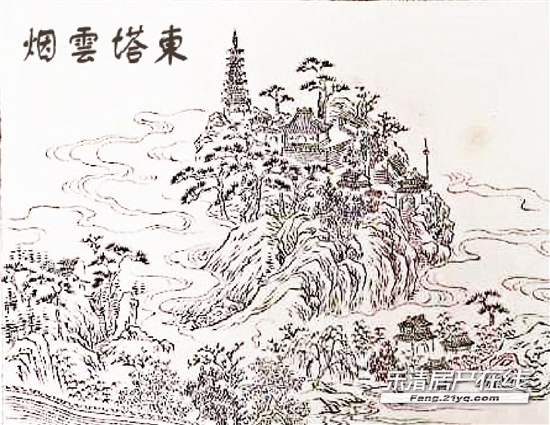 東塔雲烟
乐清房产在线
Fang.21yq.com